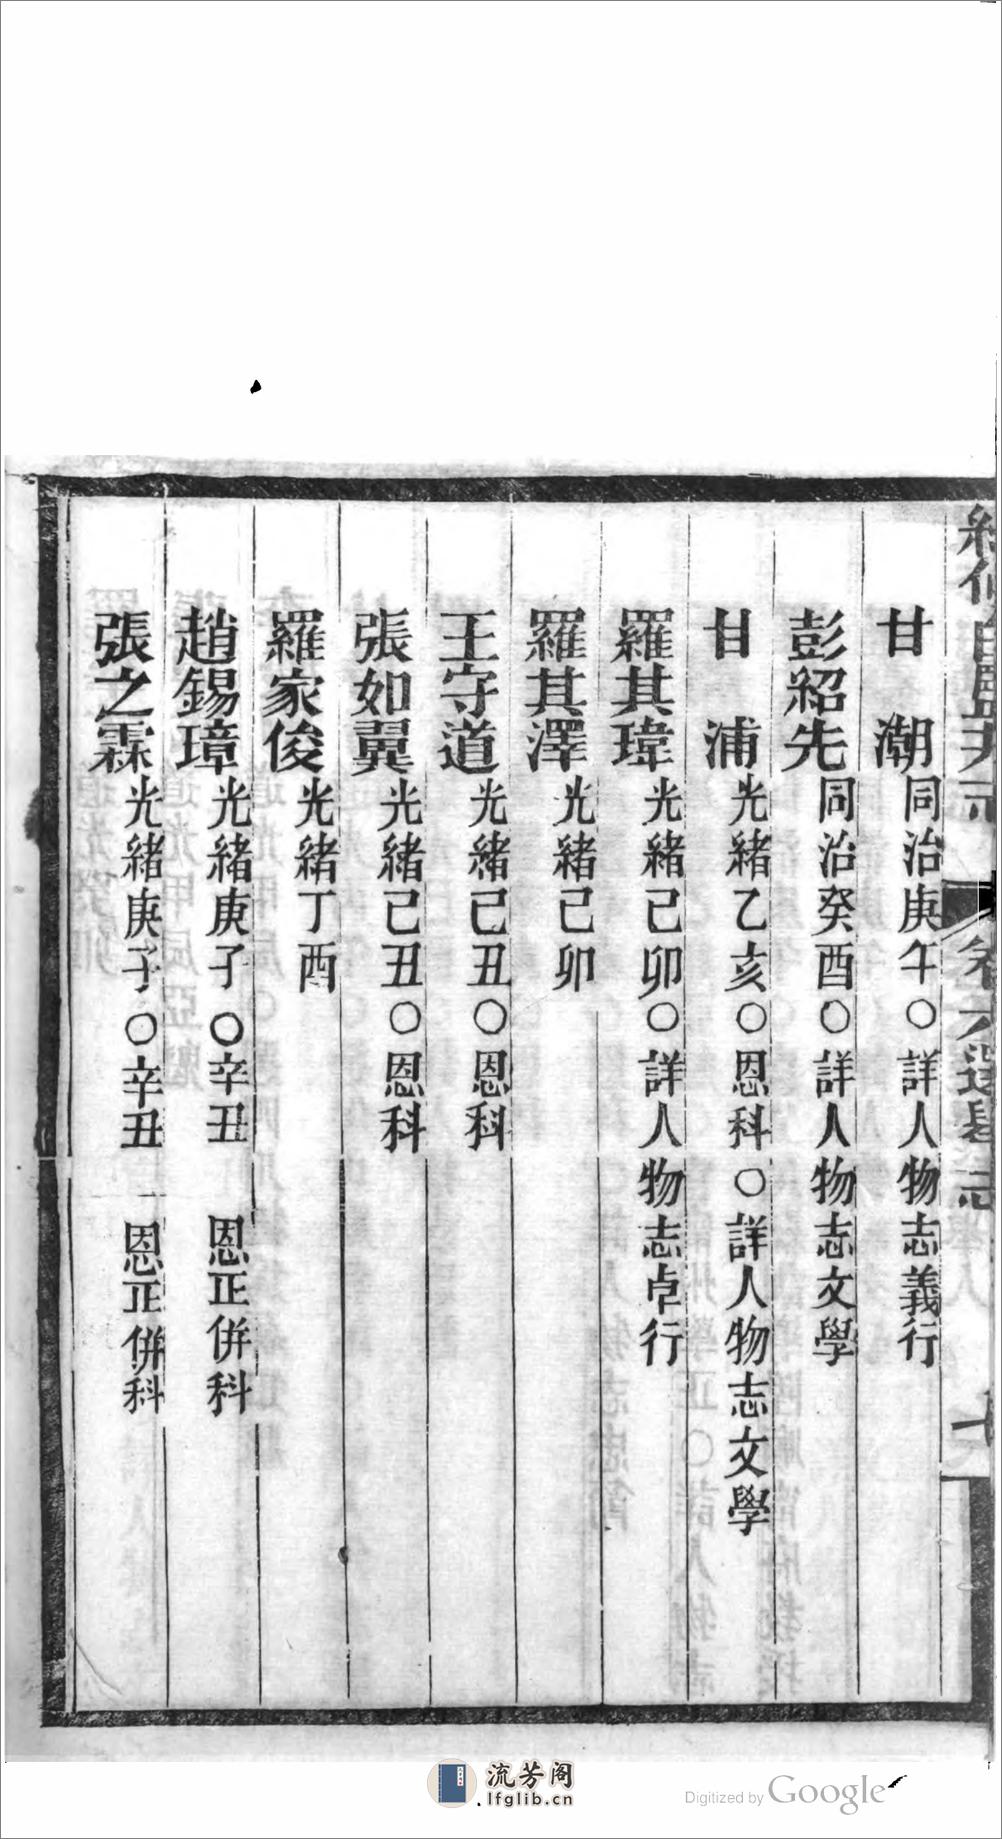 甘　潮 同治庚午〇詳人物志義行
彭紹先 同治癸酉〇詳人物志文學
甘　浦 光緒乙亥〇恩科〇詳人物志文學
羅其瑋 光緒己卯〇詳人物志卓行
羅其澤 光緒己卯
王守道 光緒己丑〇恩科
張如翼 光緒己丑〇恩科
羅家俊 光緒丁酉
趙錫璋 光緒庚子〇辛丑　恩正併科
張之霖 光緒庚子〇辛丑　恩正併科
流芳阁
.lfglib.cn
Digitized by Google